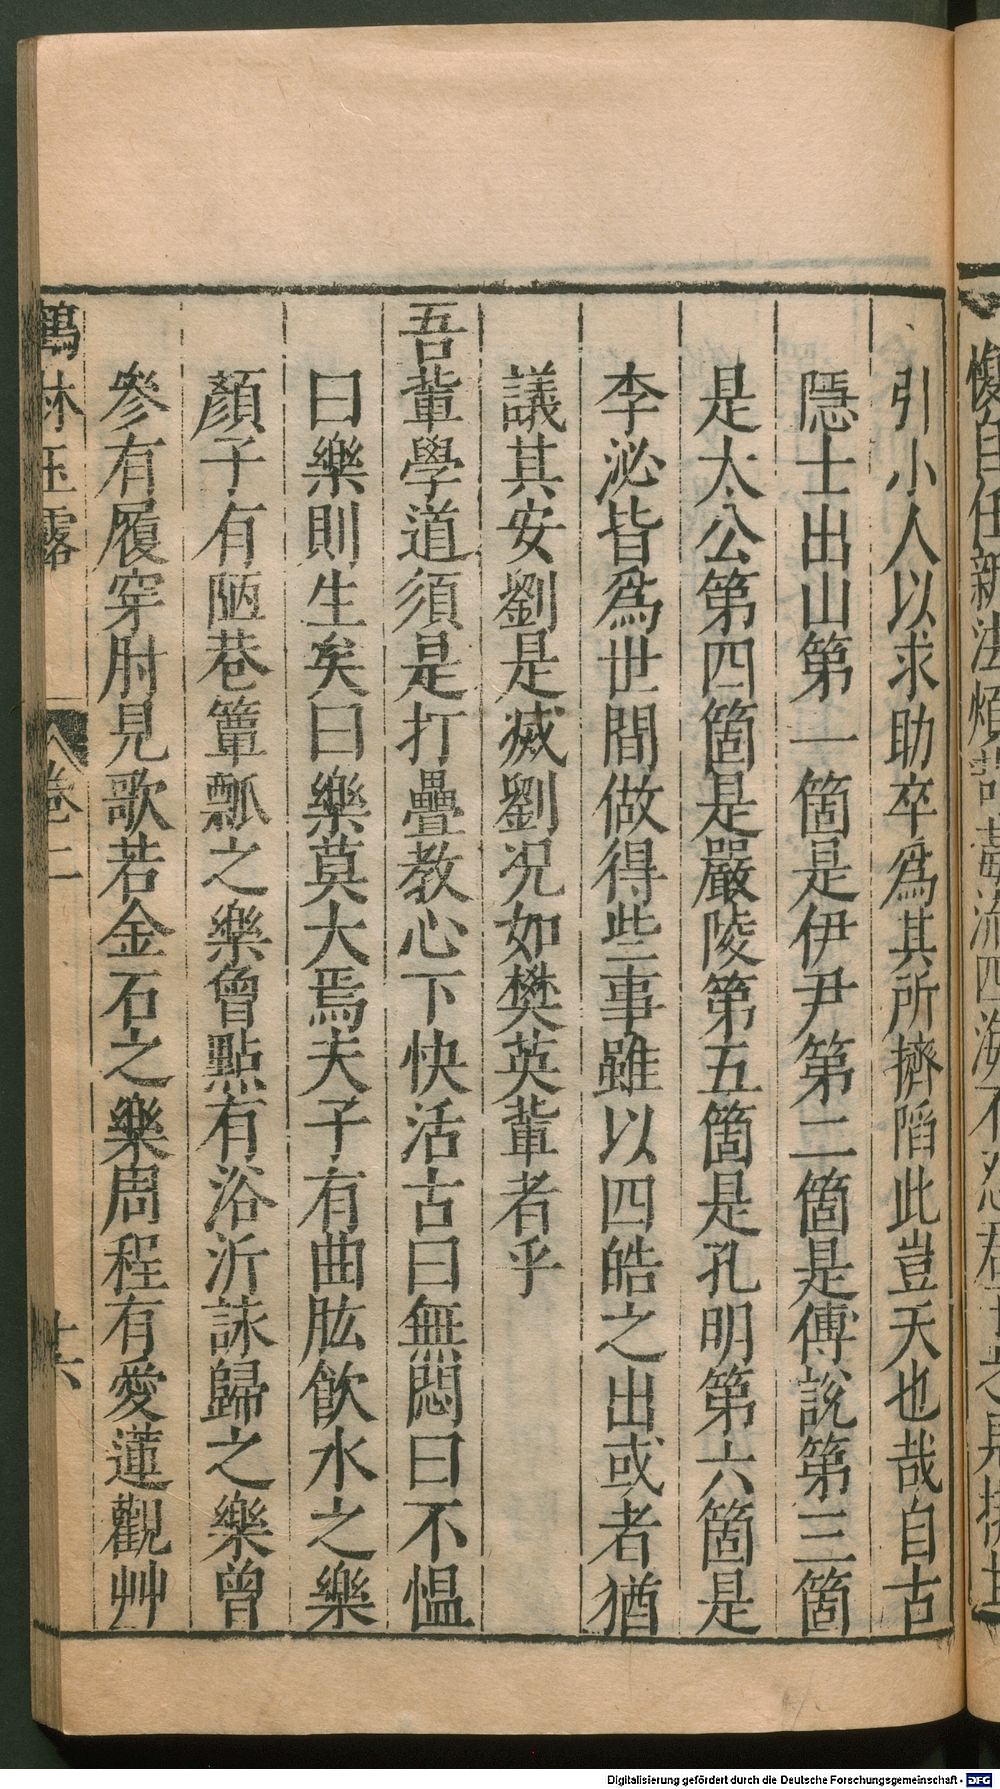 引小人以求助卒爲其所擠陷此豈天也哉自古
隱士出山第一箇是伊尹第二箇是傅說第三箇
是太公第四箇是嚴陵第五箇是孔明第六箇是
李泌皆爲世間做得些事雖以四皓之出或者猶
議其安劉是滅劉况如樊英輩者乎
吾輩學道須是打疊教心下快活古曰無悶曰不慍
曰樂則生矣曰樂莫大焉夫子有曲肱飲水之樂
顏子有陋巷簞瓢之樂曾點有浴沂詠歸之樂曾
參有履穿肘見歌若金石之樂周程有愛蓮觀艸
鶴林玉露 卷二 十六
Digitalisierung gefördert durch die Deutsche Forschungsgemeinschaft - DFG